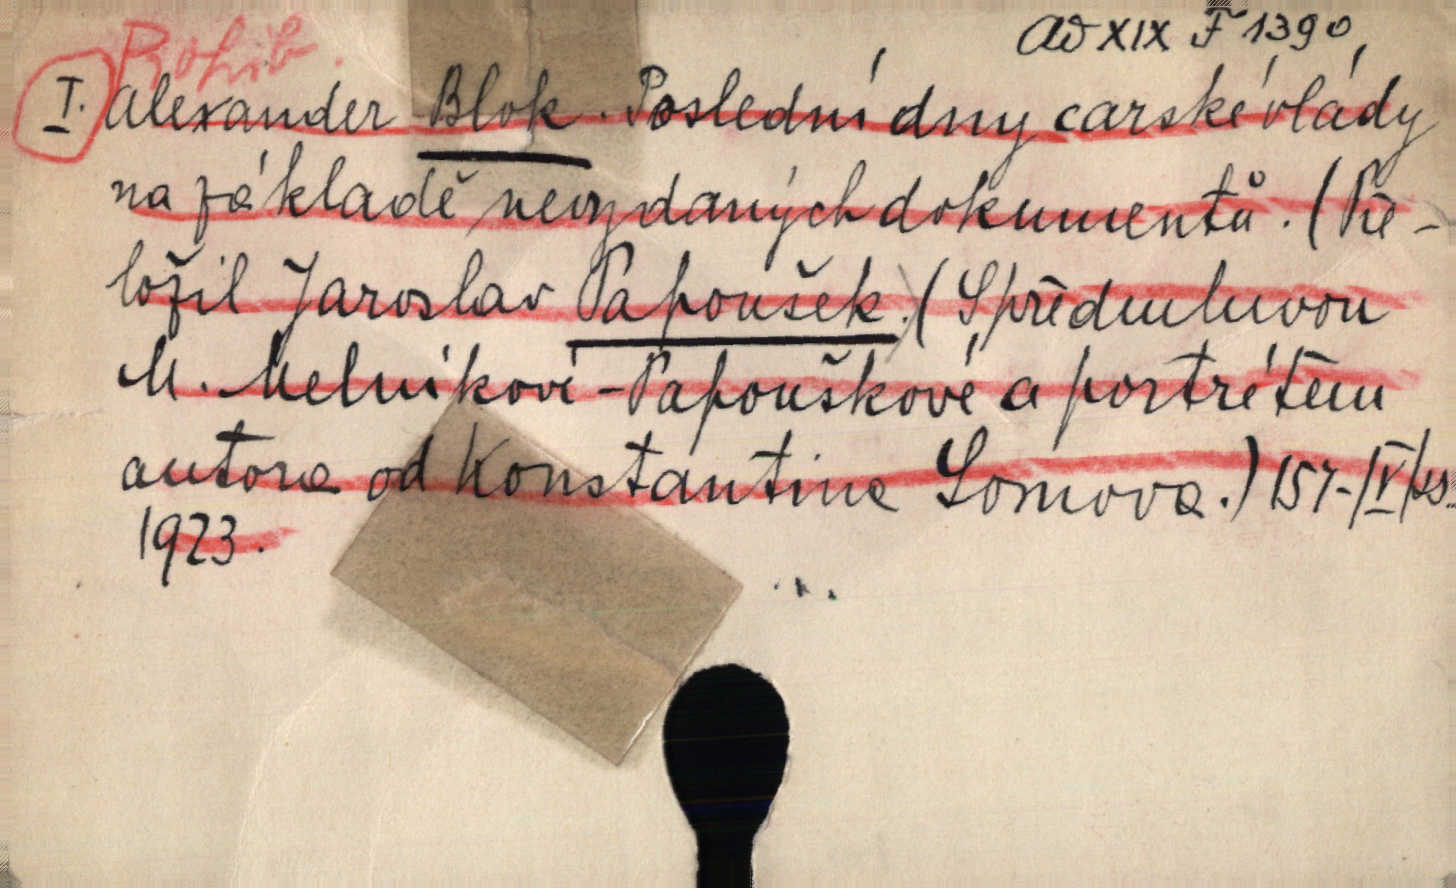 ad XIX F 1390,
Prohib.
I. Alexander Blok. Poslední dny carské vlády
na základě nevydaných dokumentů. (Pře-
ložil Jaroslav Papoušek.) (S předmluvou
M. Melnikové-Papouškové a portrétem
autora od Konstantina Somova.) 157-|V|
1923.